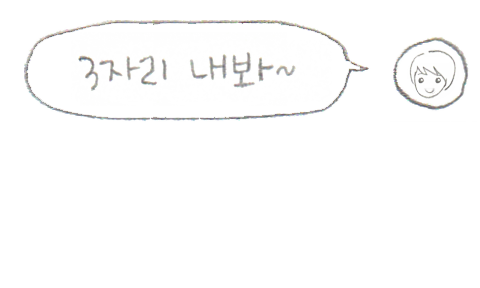 3자리 내봐~